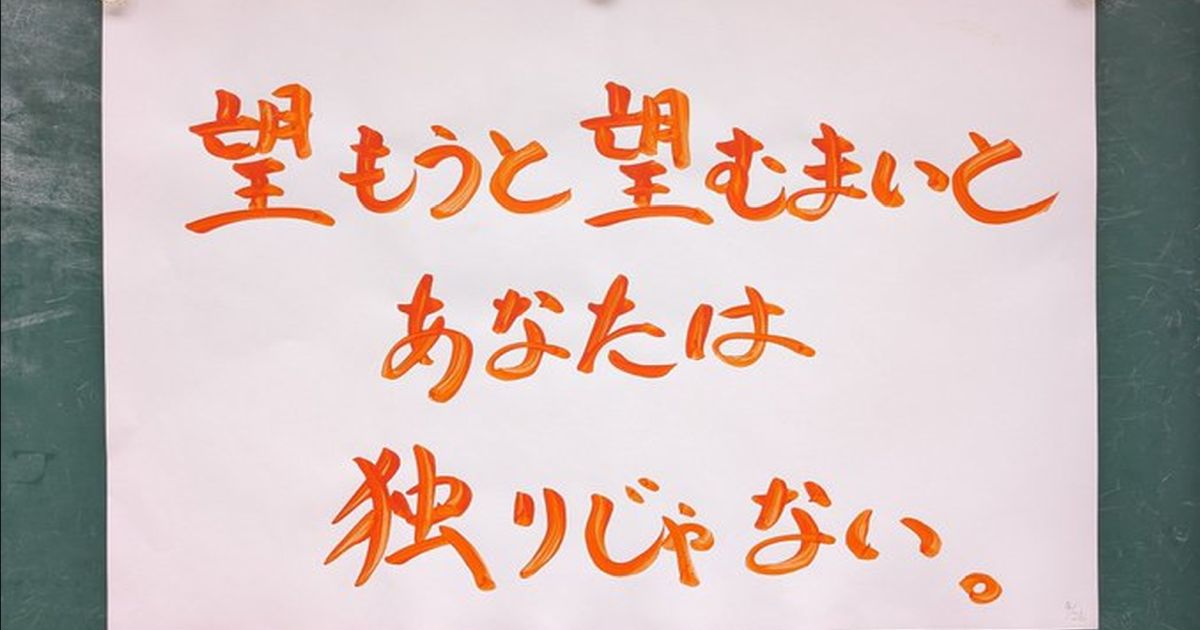 望もうと望むまいと
あなたは
独りじゃない。